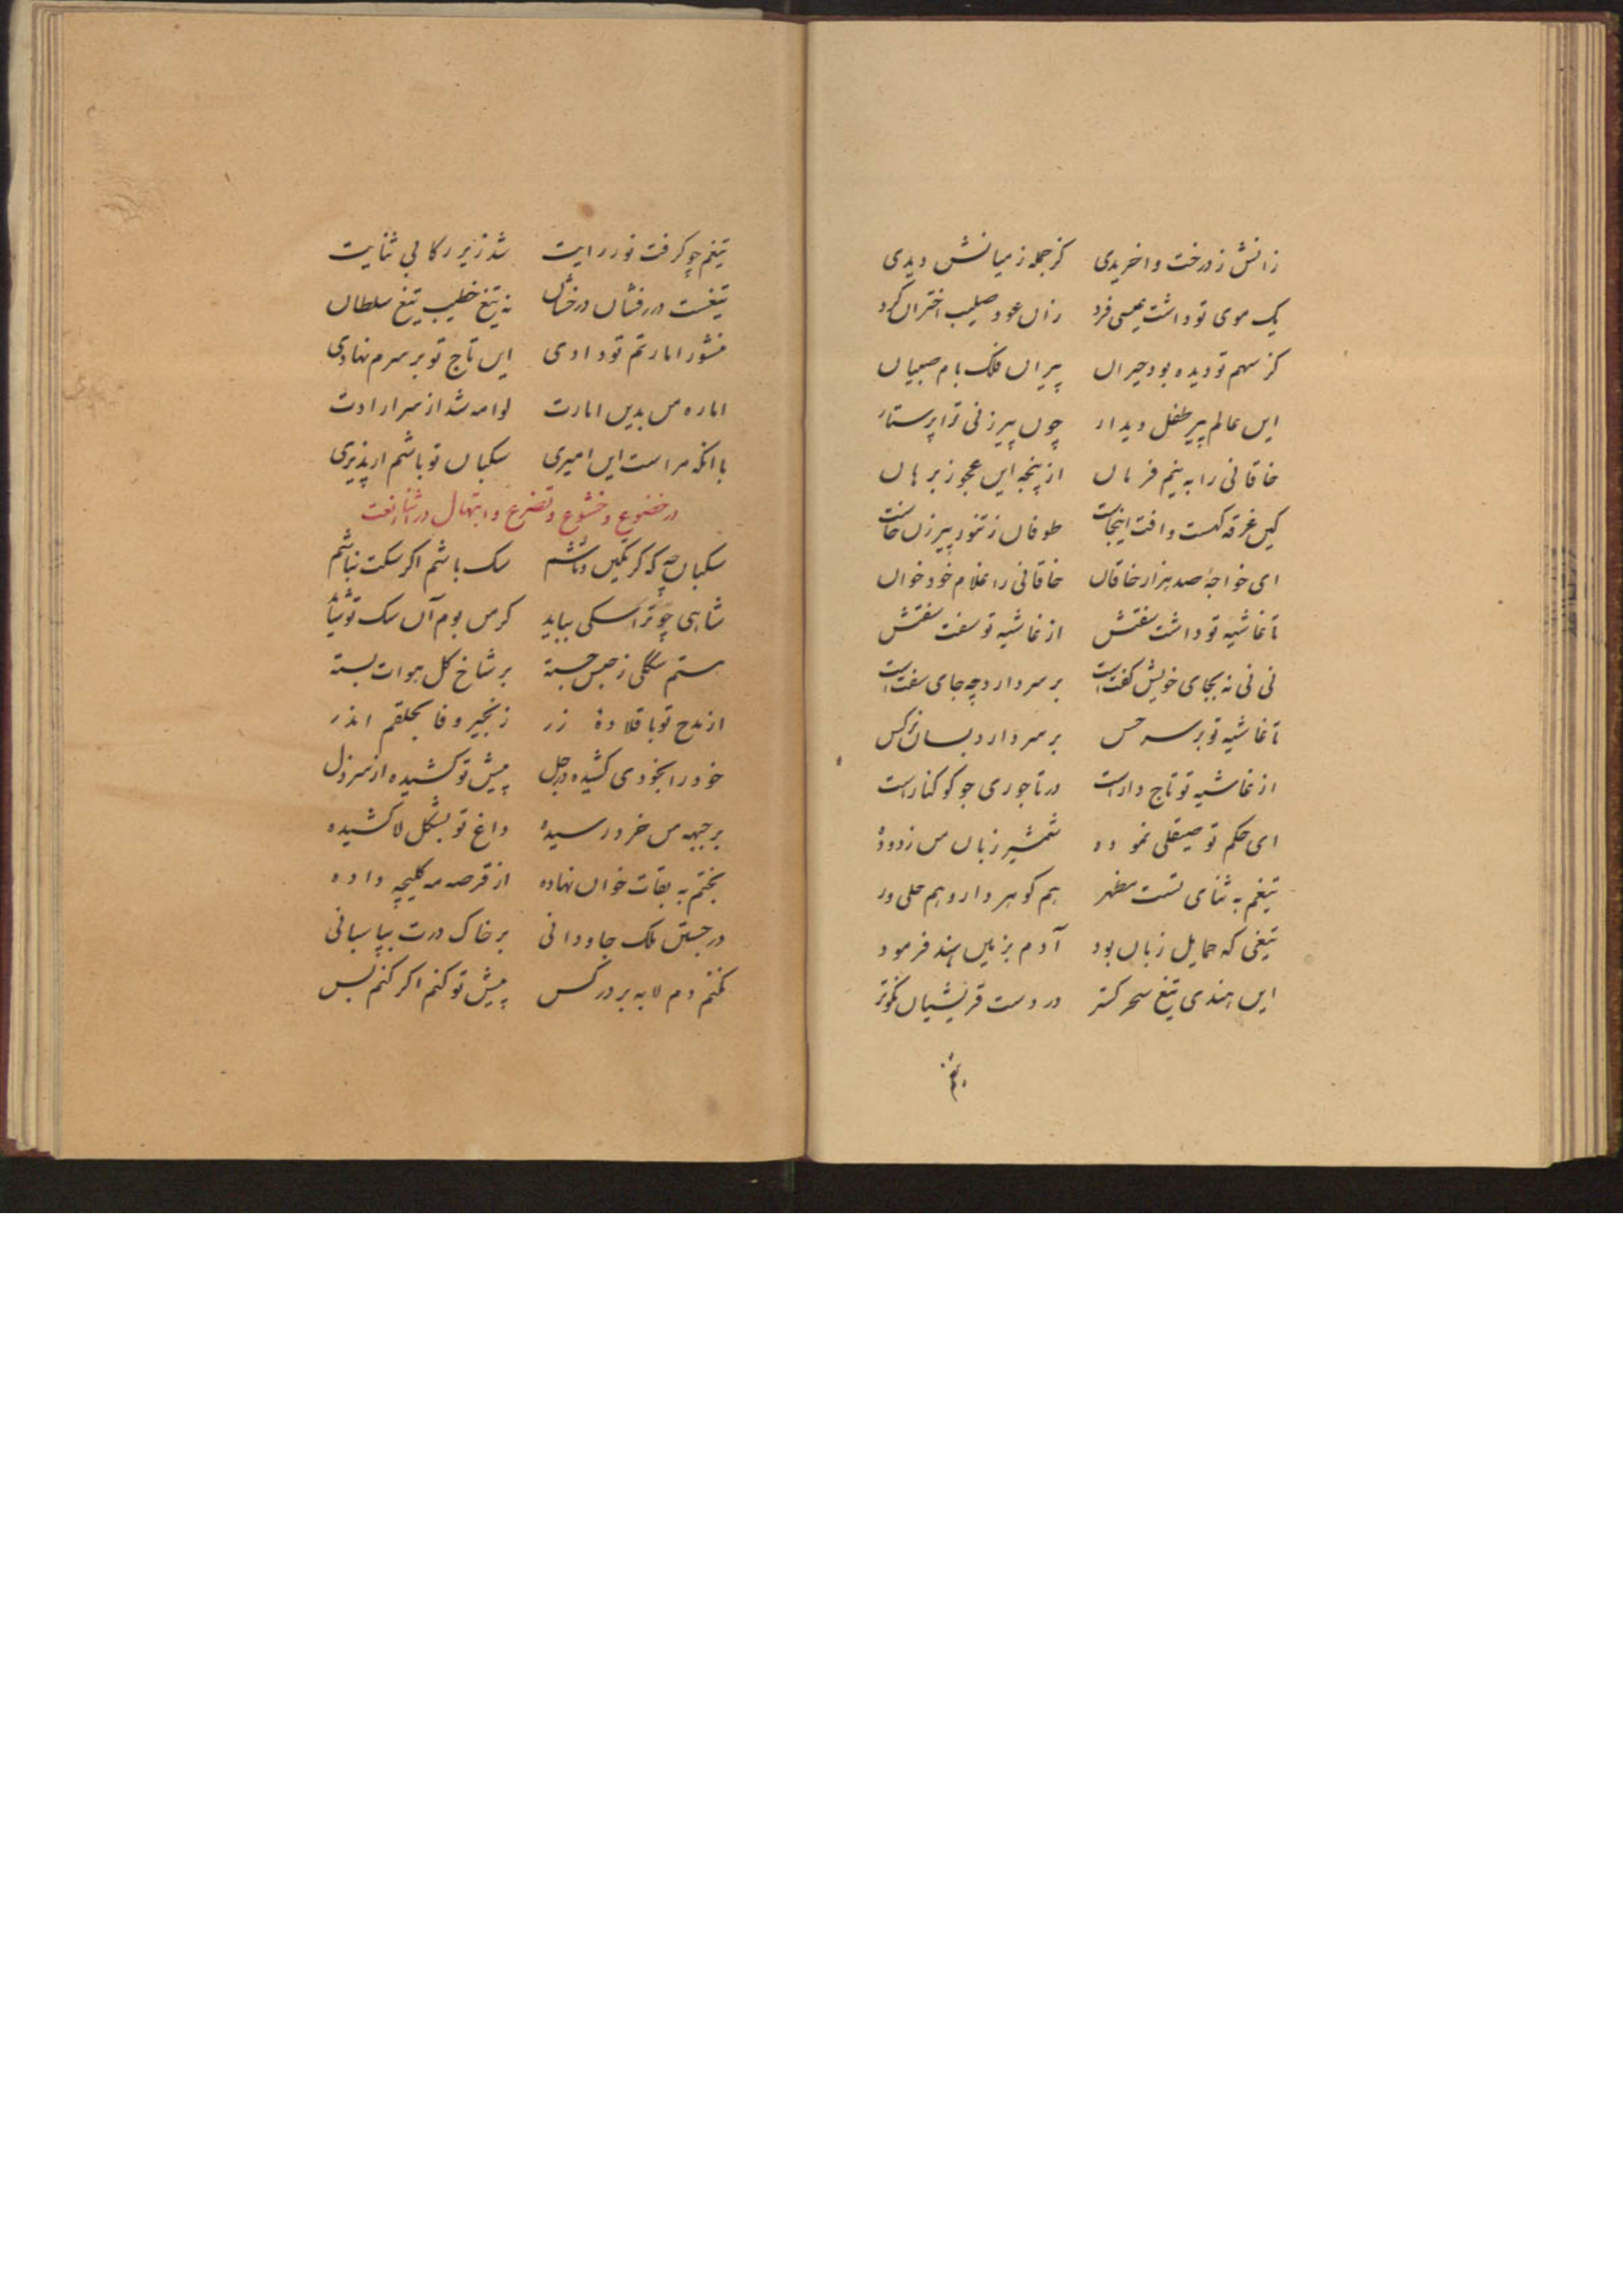 زانش ز درخت واخریدی کز جمله زمیانش دیدی
یک موی تو داشت عیسی فرد زان عود صلیب اختران کرد
کز سهم تو دیده بود حیران پیران فلک بام صبیان
این عالم پیر طفل دیدار چون پیرزنی ترا پرستار
خاقانی را به نیم فرمان از پنجه این عجوز برهان
کین غرقه کست وافت اینجاست طوفان ز تنور پیرزن خاست
ای خواجهٔ صد هزار خاقان خاقانی را غلام خود خوان
تا غاشیه تو داشت سفتش از غاشیه تو سفت سفتش
نی نی نه بجای خویش گفتست بر سر دارد چه جای سفتست
تا غاشیه تو بر سر حس بر سر دارد بسان نرکس
از غاشیه تو تاج دارست در تاجوری چو کوکنارست
ای حکم تو صیقلی نموده شمشیر زبان من زدوده
تیغم به ثنای تست مظهر هم کوهر دار و هم حلی ور
تیغی که حمایل زبان بود آدم بزمین هند فرمود
این هندی تیغ سحر کستر در دست قریشیان نکوتر
تیغم
تیغم چو کرفت نور رایت شد زیر رکابی ثنایت
تیغست درفشان درخشان نه تیغ خطیب تیغ سلطان
منشور امارتم تو دادی این تاج تو بر سرم نهادی
اماره من بدین امارت لوامه شد از سر ارادت
با انکه مراست این امیری سکبان تو باشم ار پذیری
در خضوع و خشوع و تضرع و ابتهال در اثنا نعت
سکبان چه که کر نکین باشم سک باشم اکر سکت نباشم
شاهی چو ترا سکی بباید کر من بوم آن سک تو شاید
هستم سککی ز حبس جسته بر شاخ کل هوات بسته
از مدح تو با قلادهٔ زر زنجیر وفا بحلقم اندر
خود را بخودی کشیده در جل پیش تو کشیده از سر ذل
بر جبهه من خرد رسیده داغ تو بشکل لا کشیده
بختم به بقات خوان نهاده از قرصه مه کلیچه داده
در جستن ملک جاودانی بر خاک درت بپاسبانی
نکنم دم لابه بر در کس پیش تو کنم اکر کنم بس